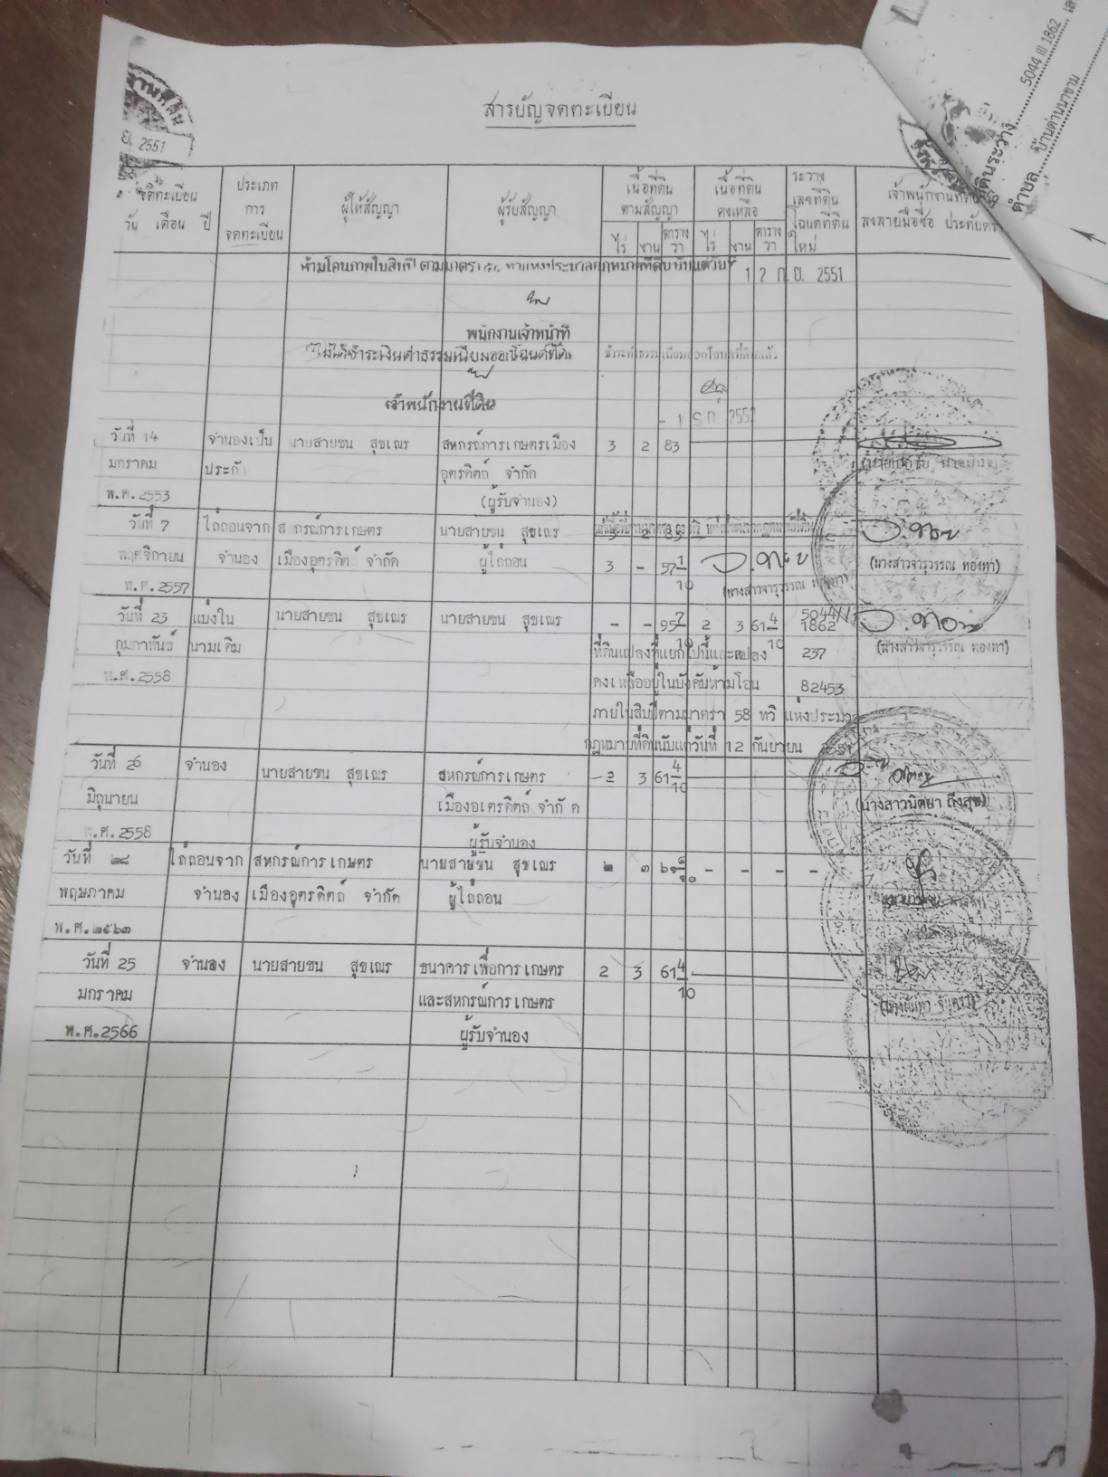 5044 III 1862
ตำบล บ้านด่านนาขาม
สารบัญจดทะเบียน
2551
จดทะเบียน
วัน เดือน ปี
ประเภท
การ
จดทะเบียน
ผู้ให้สัญญา
ผู้รับสัญญา
เนื้อที่ดิน
ตามสัญญา
ไร่ งาน ตาราง
วา
เนื้อที่ดิน
คงเหลือ
ไร่ งาน ตาราง
วา
ระวาง
เลขที่ดิน
โฉนดที่ดิน
ใหม่
เจ้าพนักงานที่ดิน
ลงลายมือชื่อ ประทับตรา
12 ก.ย. 2551
พนักงานเจ้าหน้าที่
เจ้าพนักงานที่ดิน
วันที่ 14 จำนองเป็น นายสายชน สุขเณร สหกรณ์การเกษตรเมือง 3 2 83
มกราคม ประกัน อุตรดิตถ์ จำกัด
พ.ศ.2553 (ผู้รับจำนอง)
วันที่ 7 ไถ่ถอนจาก สหกรณ์การเกษตร นายสายชน สุขเณร
พฤศจิกายน จำนอง เมืองอุตรดิตถ์ จำกัด ผู้ไถ่ถอน 3 - 57 1/10 (นางสาวจารุวรรณ ทองทา)
พ.ศ.2557 (นางสาวจารุวรรณ ทองทา)
วันที่ 23 แบ่งใน นายสายชน สุขเณร นายสายชน สุขเณร - - 95 7/10 2 3 61 4/10 5044 III 1862
กุมภาพันธ์ นามเดิม ที่ดินแปลงที่แยกไปนี้และแปลง 237 (นางสาวจารุวรรณ ทองทา)
พ.ศ.2558 คงเหลืออยู่ในบังคับห้ามโอน 82453
ภายในสิบปีตามมาตรา 58 ทวิ แห่งประมวล
กฎหมายที่ดินนับแต่วันที่ 12 กันยายน 2551
วันที่ 26 จำนอง นายสายชน สุขเณร สหกรณ์การเกษตร 2 3 61 4/10
มิถุนายน เมืองอุตรดิตถ์ จำกัด (นางสาวนิตยา ถึงสุข)
พ.ศ.2558 ผู้รับจำนอง
วันที่ ๒๘ ไถ่ถอนจาก สหกรณ์การเกษตร นายสายชน สุขเณร ๒ ๓ ๖๑ ๔/๑๐ - - - -
พฤษภาคม จำนอง เมืองอุตรดิตถ์ จำกัด ผู้ไถ่ถอน
พ.ศ.๒๕๖๓
วันที่ 25 จำนอง นายสายชน สุขเณร ธนาคารเพื่อการเกษตร 2 3 61 4/10
มกราคม และสหกรณ์การเกษตร
พ.ศ.2566 ผู้รับจำนอง